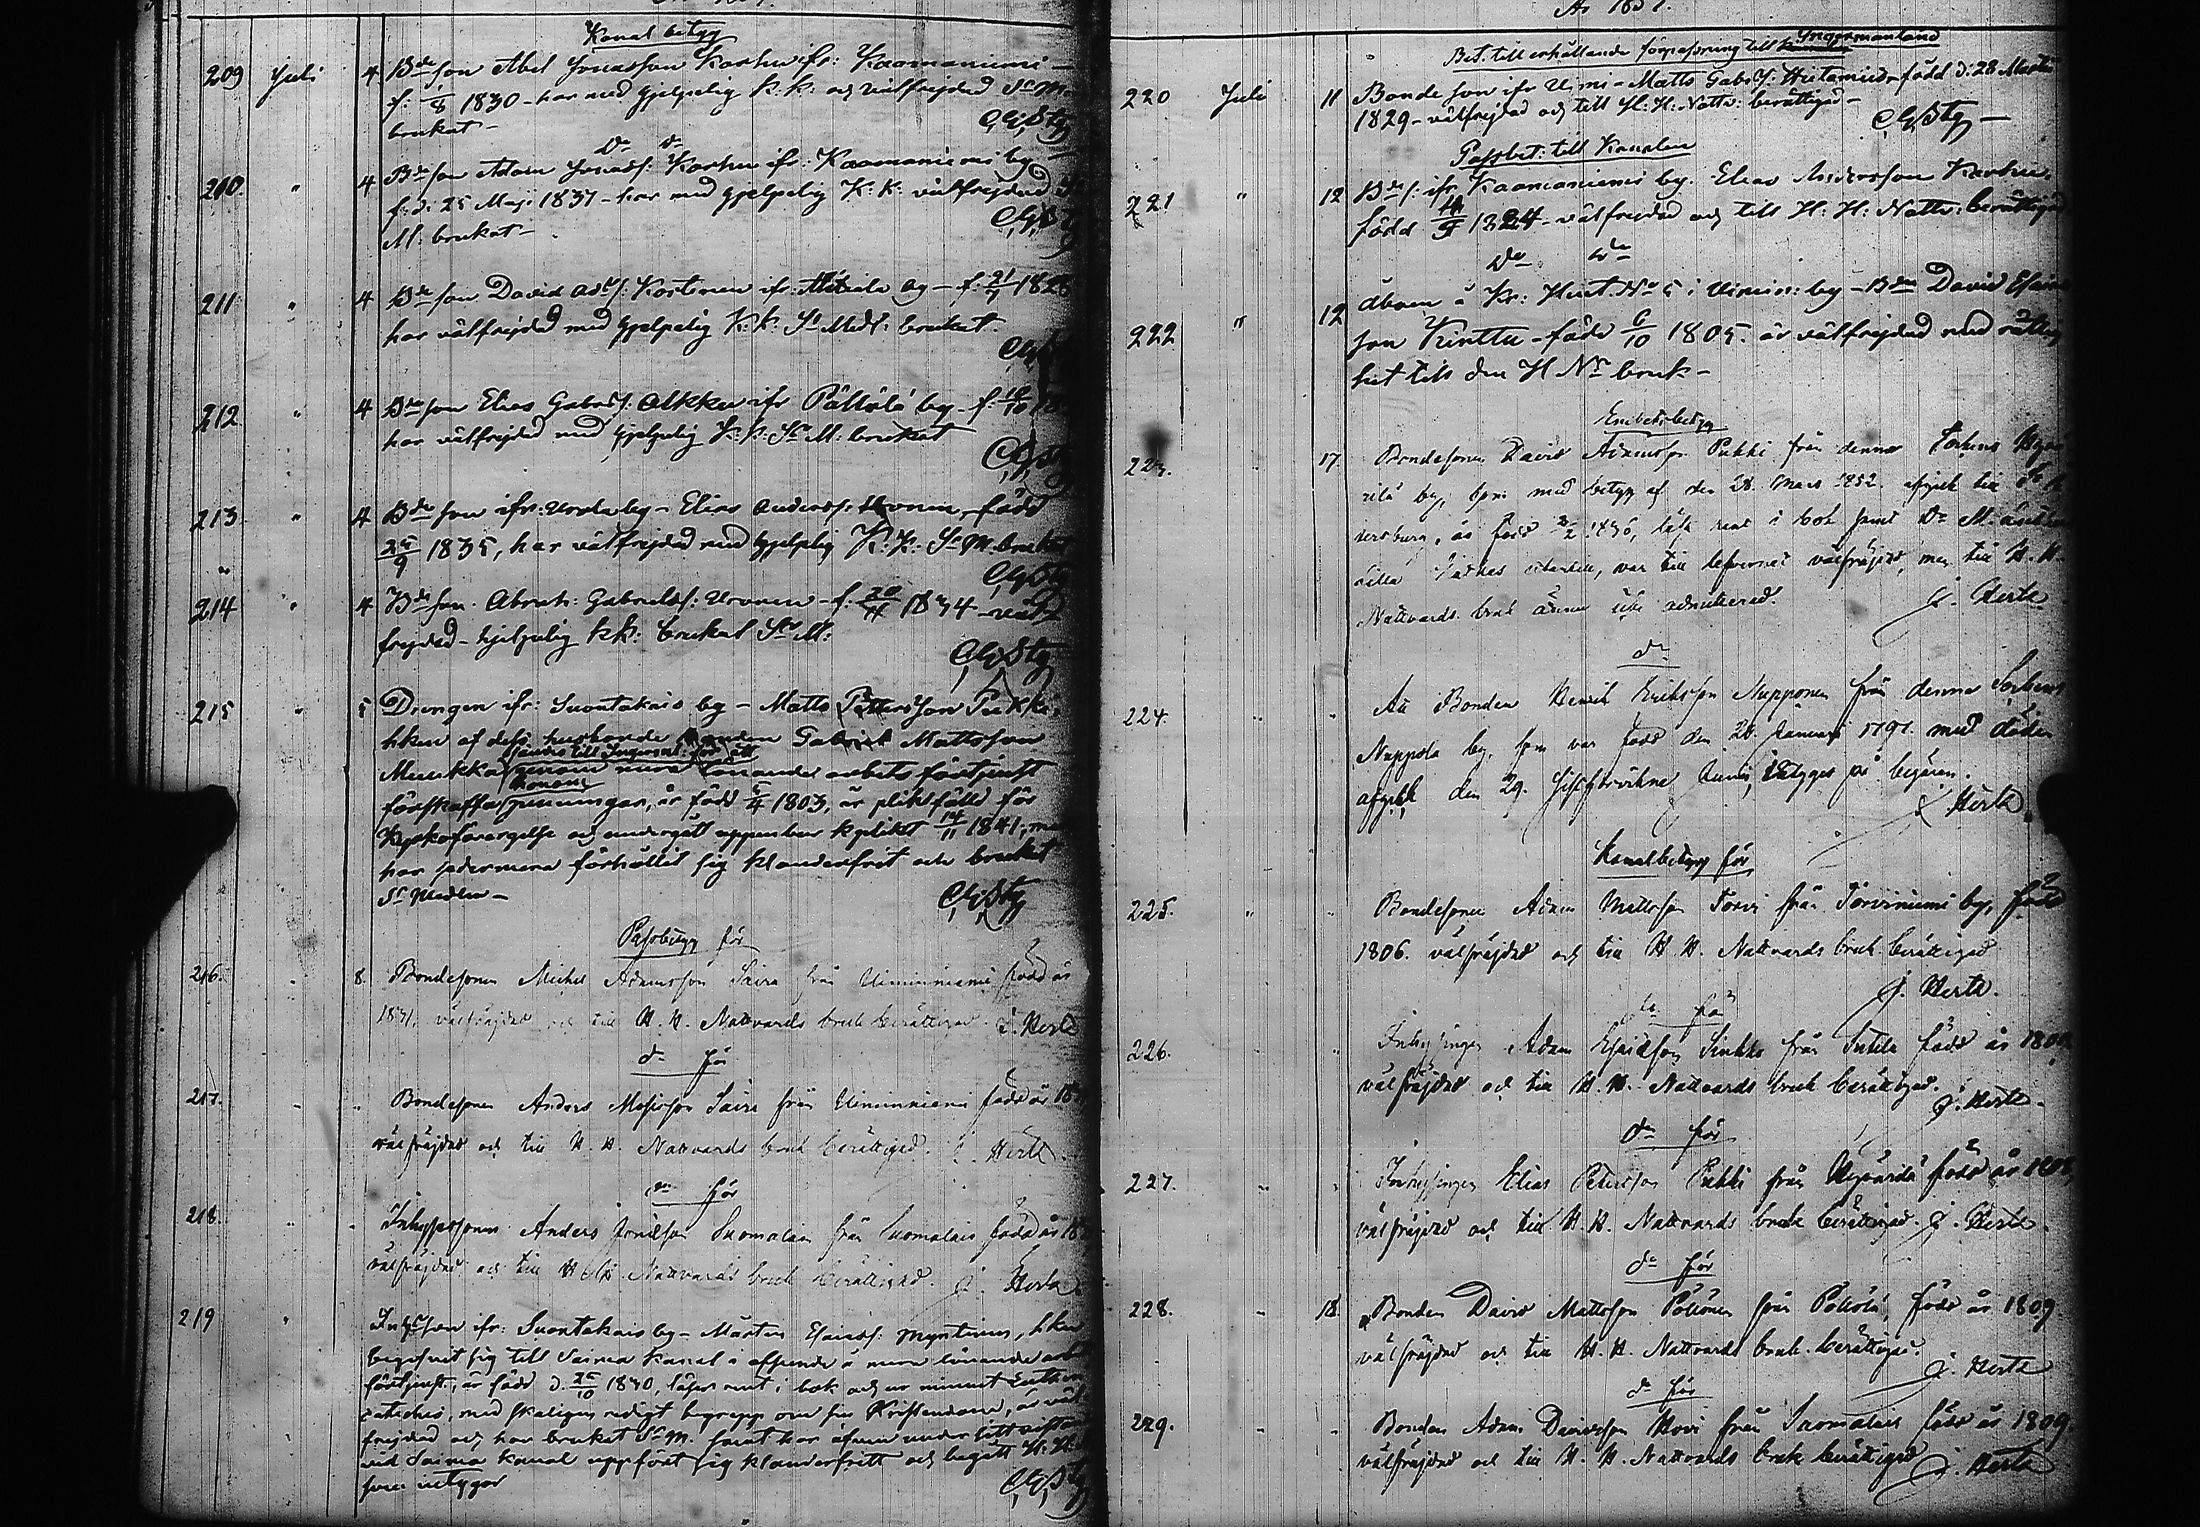 Kanal betyg
209 Juli 4 Bde son Abel Jonasson Karhu ifr: Kaamaniemi
f: 1/8 1830 - har med hjelpelig k. k. och välfrejdad St. M.
brukat - C.G. Stg
Do do
210. " 4 Bde son Adam Jonass: Karhu ifr: Kaamaniemi by
f. d. 25 Maji 1837 - har med hjelpelig K: K: välfrejdad St
M. brukat -
211 " 4 Bde son David Ads/: Kostinen ifr: by - f: 21/9 182
har välfrejdad med hjelpelig K: k: St Medl: brukat.
212 " 4 Bde son Elias Gabrs/: Alkku ifr Pällölä by - f: /10
har välfrejdad med hjelpelig k: k: St M: brukat
213 " 4 Bde son ifr: by - Elias Anderss: född
25/9 1835, har välfrejdad med hjelplig K: K: St M. brukat
214 " 4 Bde son Abrah: Gabriels/: - f: 20/11 1834 - väl
frejdad - hjelpelig kk: brukat St M:
C.G. Stg
215 " 5 Drengen ifr: Suontakais by - Matts Pettersson Pukki,
hken af dess husbonde Bonden Gabriel Mattsson
Munkka genom mera lönande arbets förtjenst
förskaffa penningar, är född 6/4 1803, är pliktfälld för
Kyrkoförargelse och undergått uppenbar kplikt 14/11 1841, men
har sedermera förhållit sig klanderfrit och brukat
St Medlen -
C.G. Stg
Passbetyg för
216. " 8. Bondesonen Michel Adamsson Saira från Uiminniemi född år
1831. välfräjdad och till H. H. Nattvards bruk berättigad. J. Hertz
do för
217. " " Bondesonen Anders Mosisson Saira från Uiminniemi född år 18
välfräjdad och till H. H. Nattvards bruk berättigad. J. Hertz
do för
218. " " Inhysessonen Anders Suomalain från Suomalais född år 18
välfräjdad och till H. H. Nattvards bruk berättigad. J. Hertz
219 " Inhysson ifr: Suontakais by - Mårten Esaiass: Myntinen, hken
begifvit sig till Saima Kanal i afseende å mera lönande arb
förtjenst, är född d. 25/10 1830, läser rent i bok och ur minnet Lutheri
Cateches, med skäligen redigt begrepp om sin Kristendom, är väl
frejdad och har brukat St. M. samt har äfven under
vid Saima kanal uppfört sig klanderfritt och begått H. H.
som intygar
C.G. Stg
År 1851.
Bet. till erhållande förpassning till Ingermanland
220 Juli 11 Bonde son ifr Uimi - Matts Gabr/: Hietamies - född d: 28 Martii
1829 - välfrejdad och till H: H: Nattv: berättigad -
C.G. Stg -
Passbet: till Kanalen
221 " 12 Bde s: ifr Kaamaniemi by. Elias Andersson Karhu,
född 4/9 1824 - välfrejdad och till H: H: Nattv: berättigad
Do do
222 " 12 åboen å Kr: Hemt. No 5 i Uimin: by - Bden David Esais
son Kinttu - född 6/10 1805. är välfrejdad med rättig
het till den H Nr bruk -
Enketsbetyg
223. 17 Bondesonen David Adamsson Pukki från denna Sockens
by, som med betyg af den 28 Mars 1852. afgick till St. P
tersburg, är född 2/2 1830, läste rent i bok samt Dr M.
lilla Kateches utantill, var till lefvernet välfräjdad, men till H. H.
Nattvards bruk ännu icke admitterad. J. Hertz.
do
224. " " Att Bonden Henrik Eriksson Nupponen från denna Sockens
Nuppola by, som var född den 28. Januari 1791. med döden
afgick den 29. Juni, betygas på begäran.
J. Hertz.
Kanalbetyg för
225. " " Bondesonen Adam Mattsson Torvi från Torviniemi by, född
1806. välfräjdad och till H. H. Nattvards bruk berättigad
J. Hertz.
do för
226. " " Inhysingen Adam Esaiasson Sinkko från född år 180
välfräjdad och till H. H. Nattvards bruk berättigad.
J. Hertz.
do för
227. " " Inhysingen Elias Petersson Pukki från född år 180
välfräjdad och till H. H. Nattvards bruk berättigad. J. Hertz.
do för
228. " 18 Bonden David Mattsson Pöllönen från Pöllölä, född år 1809
välfräjdad och till H. H. Nattvards bruk berättigad.
J. Hertz
do för
229. " " Bonden Adam Davidsson Hovi från Suomalais född år 1809.
välfräjdad och till H. H. Nattvards bruk berättigad J. Hertz